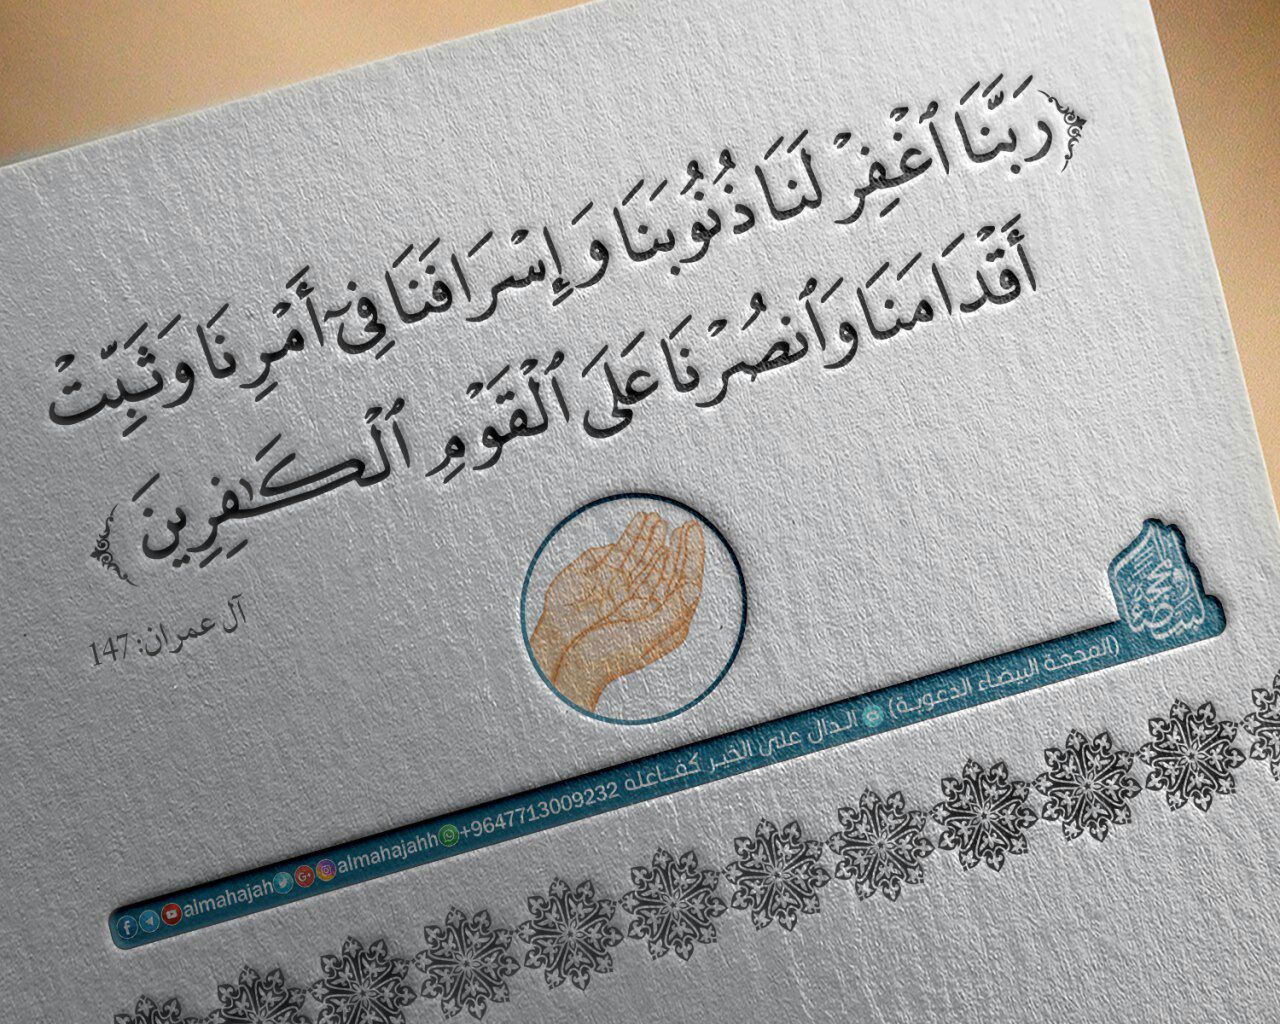 ﴿رَبَّنَا ٱغْفِرْ لَنَا ذُنُوبَنَا وَإِسْرَافَنَا فِىٓ أَمْرِنَا وَثَبِّتْ
أَقْدَامَنَا وَٱنصُرْنَا عَلَى ٱلْقَوْمِ ٱلْكَـٰفِرِينَ﴾
آل عمران: 147
المحجة البيضاء
(المحجة البيضاء الدعوية) الدال على الخير كفاعله +9647713009232 almahajahh almahajah